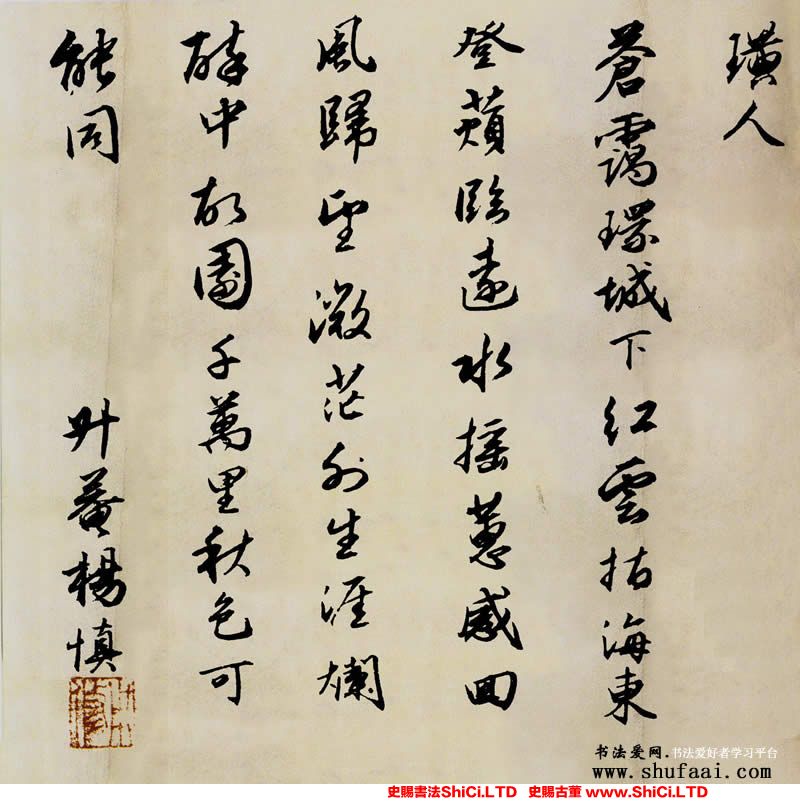 璜人
蒼靄環城下紅雲拈海東
登蘋臨遠水搖蕙感回
風歸望微茫外生涯爛
醉中故園千萬里秋色可
能同
升菴楊慎
书法爱网.书法爱好者学习平台
www.shufaai.com
史賜書法ShiCi.LTD 史賜古董 www.ShiCi.LTD